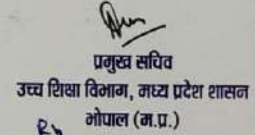 प्रमुख सचिव
उच्च शिक्षा विभाग, मध्य प्रदेश शासन
भोपाल (म.प्र.)